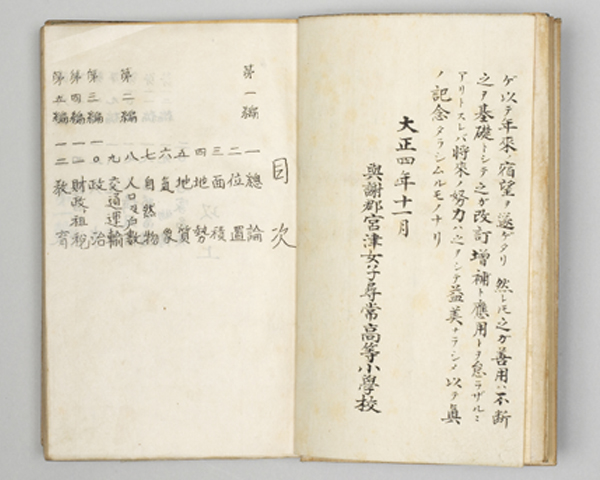 ゲ以テ年來ノ宿望ヲ遂ゲタリ 然レドモ之ガ善用ハ不斷
之ヲ基礎トシテ之ガ改訂增補ト應用トヲ怠ラザルニ
アリトスレバ將來ノ努力ハ之ヲシテ益美ナラシメ以テ眞
ノ記念タラシムルモノナリ
大正四年十一月
與謝郡宮津女子尋常高等小學校
目次
第一編 一 總論
二 位置
三 面積
四 地勢
五 地質
六 氣象
七 自然物
第二編 八 人口及戸數
九 交通運輸
第三編 一〇 政治
第四編 一一 財政、租税
第五編 一二 教育